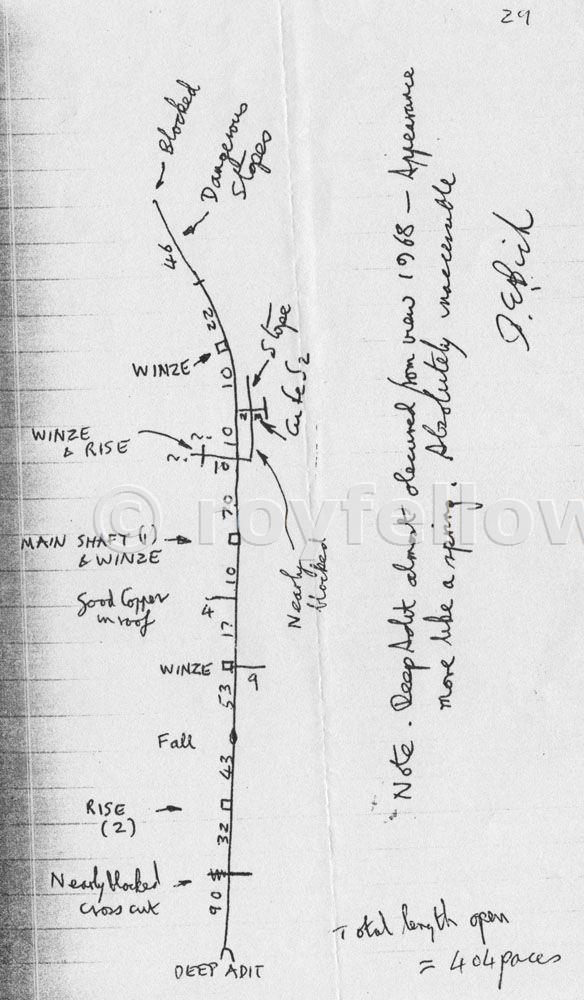 29
Blocked
Dangerous
Stopes
46
22
WINZE
10
Stope
CuFeS2
WINZE
& RISE
?
?
10
10
70
© royfellow
MAIN SHAFT (1)
& WINZE
10
Good Copper
in roof
4
Nearly
blocked
17
WINZE
9
53
Fall
43
RISE
(2)
32
Nearly blocked
cross cut
90
DEEP ADIT
Note. Deep Adit almost obscured from view 1968 – Appearance
more like a spring. Absolutely inaccessible
D.E. Bick
Total length open
= 404 paces